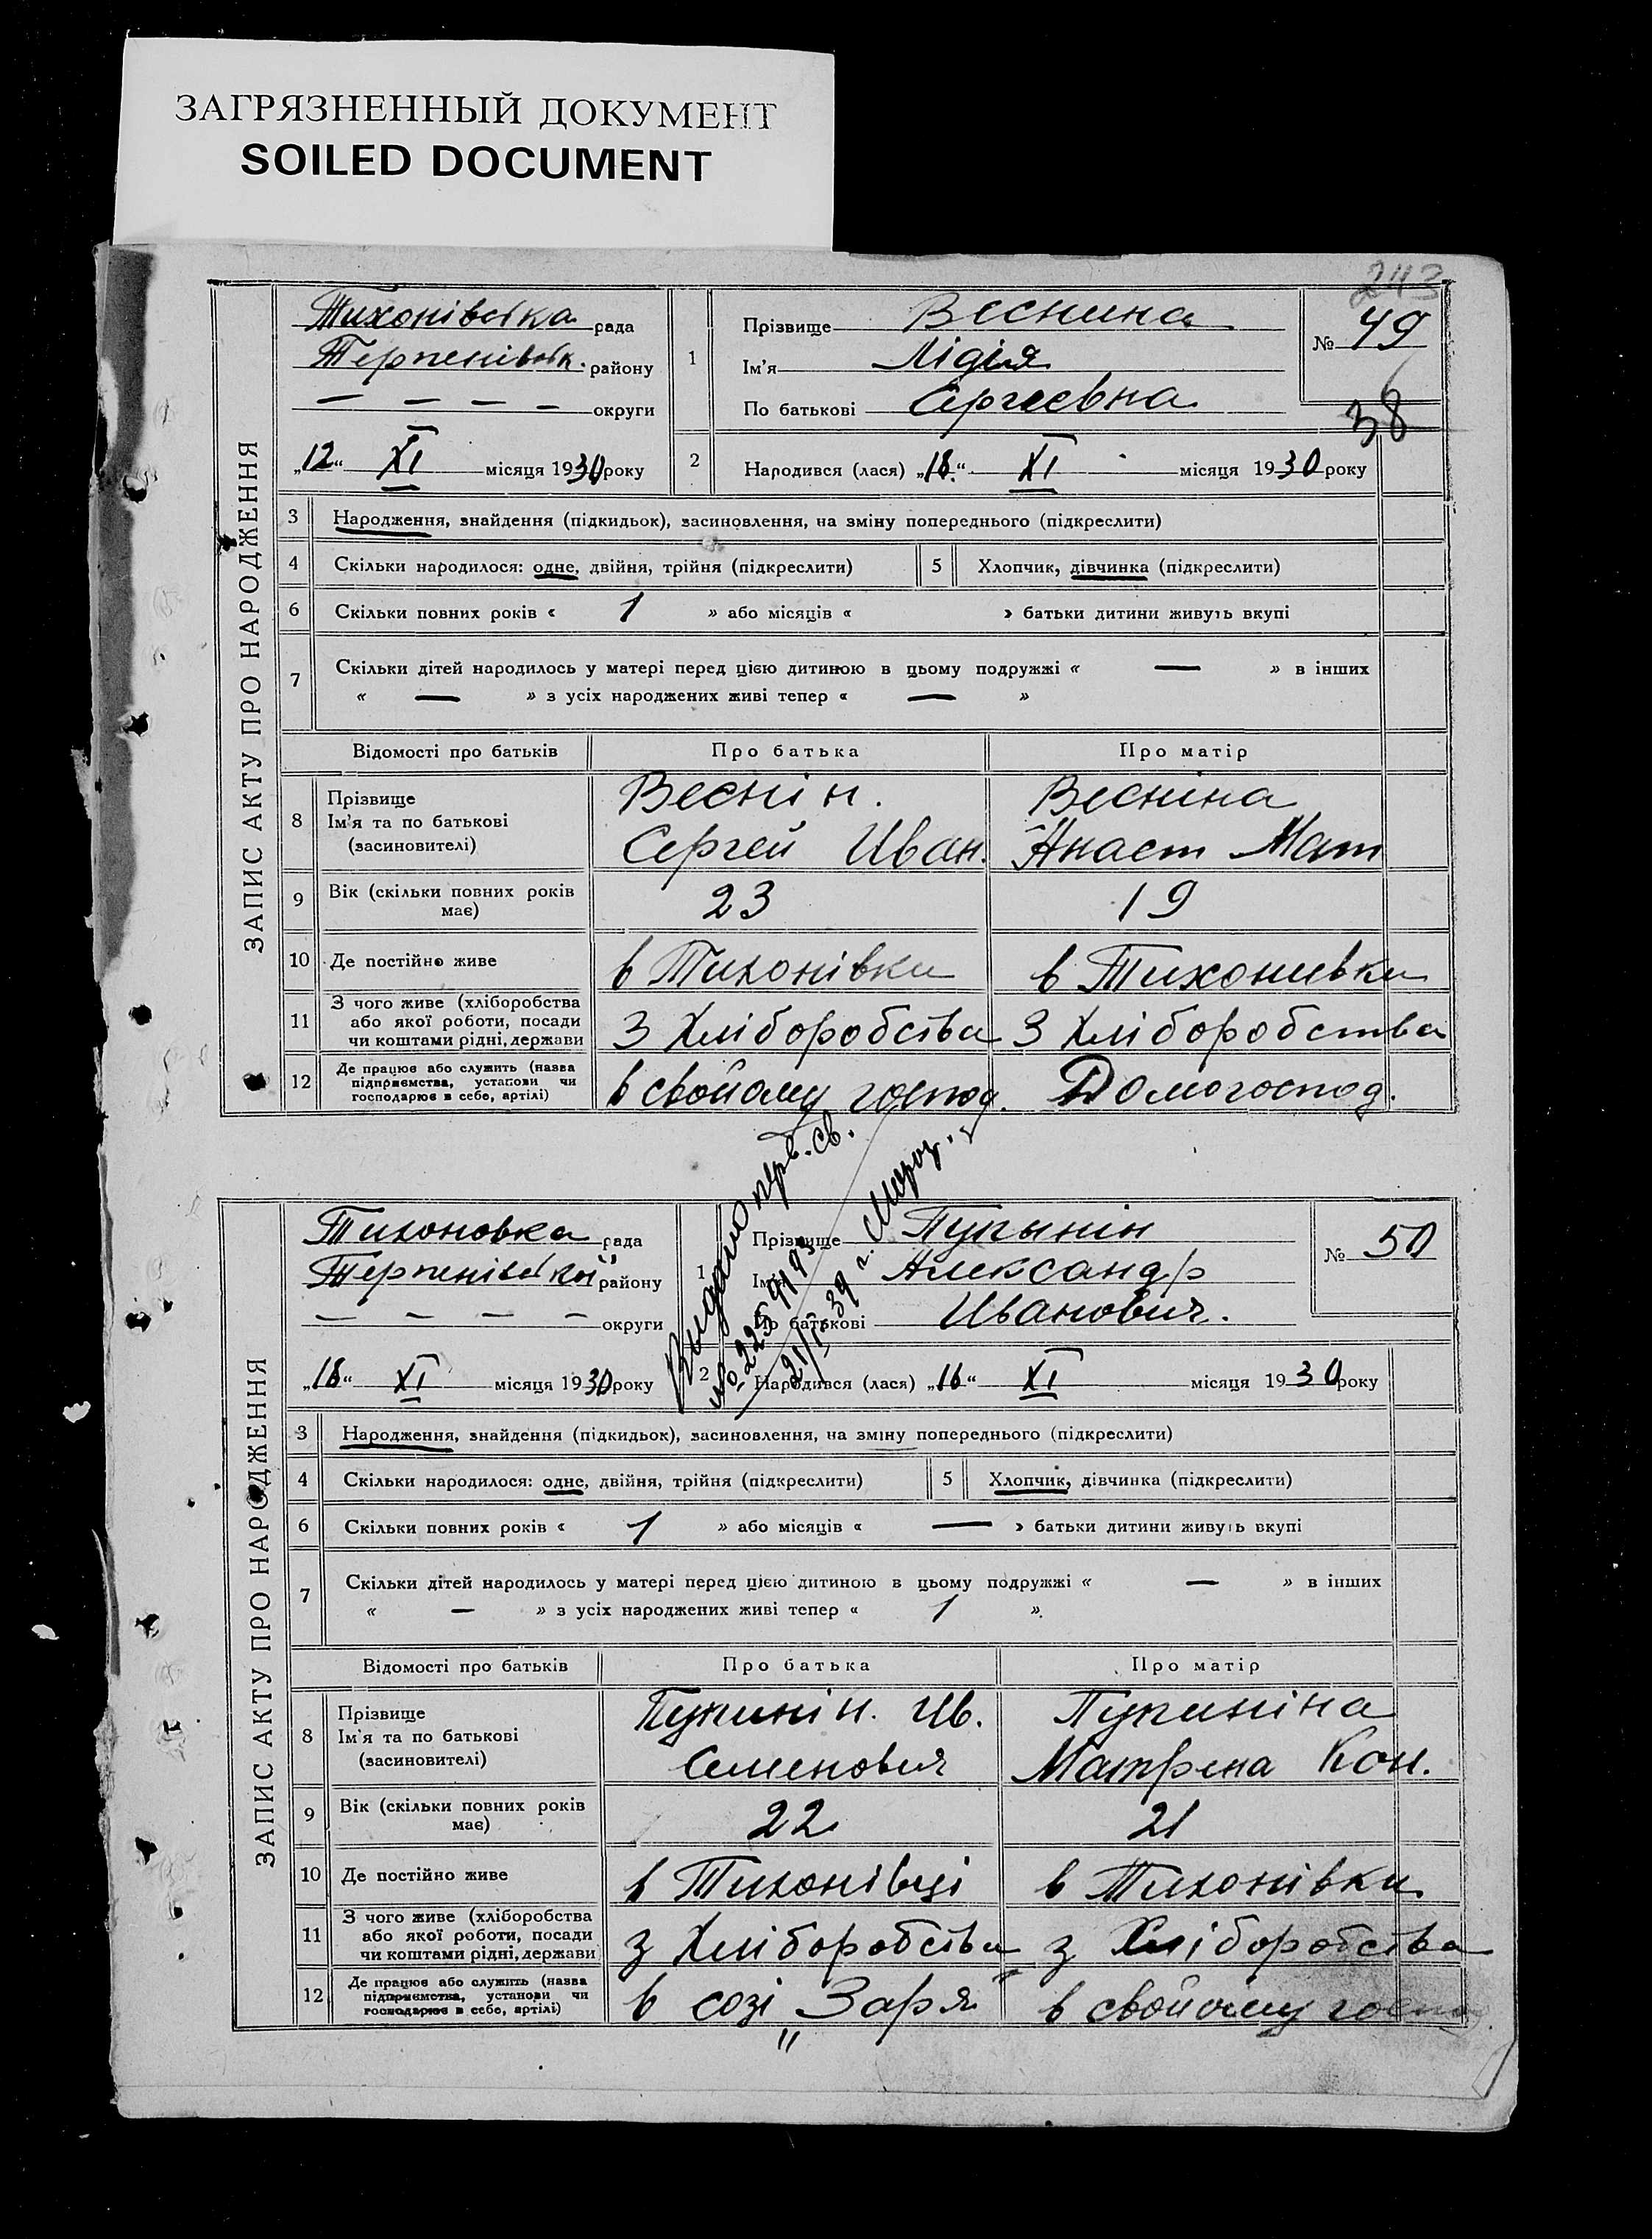 ЗАГРЯЗНЕННЫЙ ДОКУМЕНТ
SOILED DOCUMENT
243
ЗАПИС АКТУ ПРО НАРОДЖЕННЯ
Тихонівська рада
Терпенівськ. району
— — — — округи
„12“ XI місяця 1930 року
1
Прізвище Веснина
Ім'я Лідія
По батькові Сергеевна
№ 49
38
2 Народився (лася) „18“ XI місяця 1930 року
3 Народження, знайдення (підкидьок), засиновлення, на зміну попереднього (підкреслити)
4 Скільки народилося: одне, двійня, трійня (підкреслити) 5 Хлопчик, дівчинка (підкреслити)
6 Скільки повних років « 1 » або місяців « » батьки дитини живуть вкупі
7 Скільки дітей народилось у матері перед цією дитиною в цьому подружжі « — » в інших
« — » з усіх народжених живі тепер « — »
Відомості про батьків Про батька Про матір
8 Прізвище
Ім'я та по батькові
(засиновителі)
Веснін.
Сергей Иван.
Весніна
Анаст Мат
9 Вік (скільки повних років
має)
23
19
10 Де постійно живе в Тихонівки в Тихонивки
11 З чого живе (хліборобства
або якої роботи, посади
чи коштами рідні, держави
З Хліборобства З Хліборобства
12 Де працює або служить (назва
підприємства, установи чи
господарює в себе, артілі)
в свойому господ. Домогоспод.
Видано св.
№
39 г.
ЗАПИС АКТУ ПРО НАРОДЖЕННЯ
Тихоновка рада
Терпенівської району
— — — — округи
„18“ XI місяця 1930 року
1
Прізвище Пупынін
Ім'я Александр
По батькові Иванович.
№ 50
2 Народився (лася) „16“ XI місяця 1930 року
3 Народження, знайдення (підкидьок), засиновлення, на зміну попереднього (підкреслити)
4 Скільки народилося: одне, двійня, трійня (підкреслити) 5 Хлопчик, дівчинка (підкреслити)
6 Скільки повних років « 1 » або місяців « — » батьки дитини живуть вкупі
7 Скільки дітей народилось у матері перед цією дитиною в цьому подружжі « — » в інших
« — » з усіх народжених живі тепер « 1 »
Відомості про батьків Про батька Про матір
8 Прізвище
Ім'я та по батькові
(засиновителі)
Пупинін. Ив.
Семенович
Пупиніна
Матрена Кон.
9 Вік (скільки повних років
має)
22
21
10 Де постійно живе в Тихонівці в Тихонівки
11 З чого живе (хліборобства
або якої роботи, посади
чи коштами рідні, держави
з Хліборобства з Хліборобства
12 Де працює або служить (назва
підприємства, установи чи
господарює в себе, артілі)
в созі „Заря“ в свойому